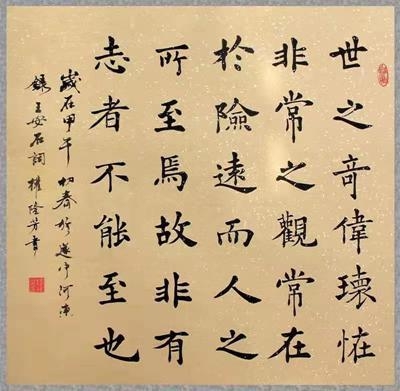 世之竒偉瓌恠
非常之觀常在
於險遠而人之
所至焉故非有
志者不能至也
歲在甲午初春於遂宁河東
錄王安石詞權隆芳書